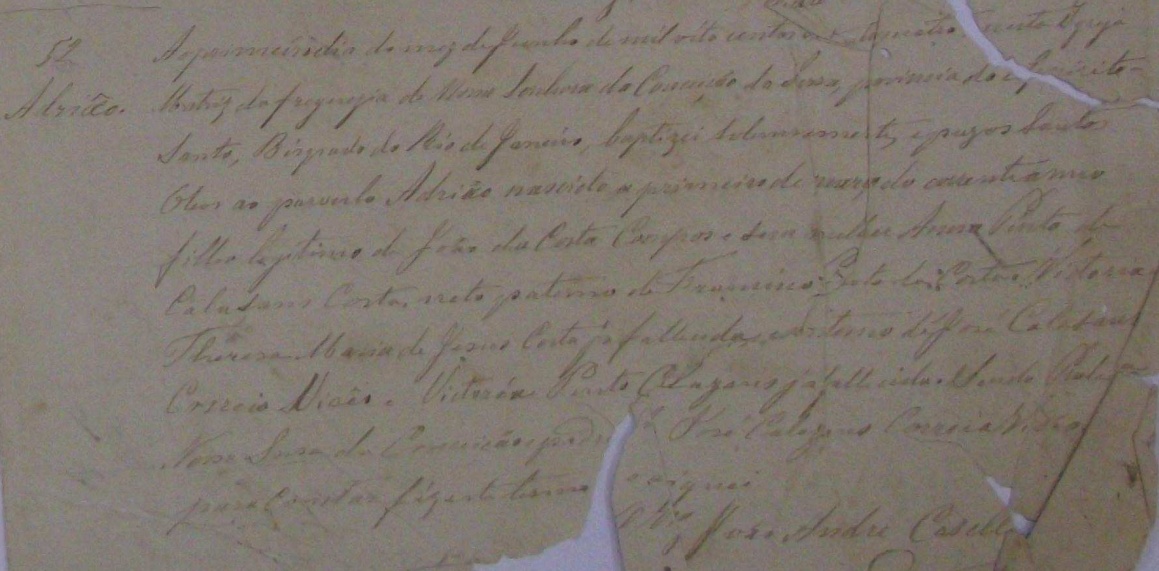 52
Adrião.
Ao primeiro dia do mez de Junho de mil oito centos nesta Igreja
Matriz da freguezia de Nossa Senhora da Conceição da Serra, provincia do Espirito
Santo, Bispado do Rio de Janeiro, baptizei solemnemente, e puz os Santos
Oleos ao parvulo Adrião nascido a primeiro de março do corrente anno
filho legitimo de João da Costa Campos e sua mulher Anna Pinto de
Calasans Costa, neto paterno de Francisco da Costa e Victoria
Thereza Maria de Jesus Costa já fallecida, e materno de José Calasans
Correia Victoria Pinto Calazans já fallecida. Sendo
Nossa Snra da Conceição e padrinho José Calazans Correia
para constar fiz este termo e assignei
O Vigº João André Casella